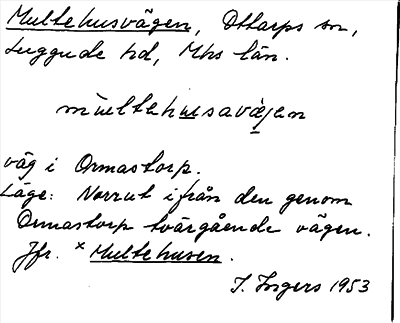 Multehusvägen, Ottarps sn,
Luggude hd, Mhs län.
mùltehusavägen
väg i Ormastorp.
Läge: Norrut ifrån den genom
Ormastorp tvärgående vägen.
Jfr. × Multehusen.
I. Ingers 1953